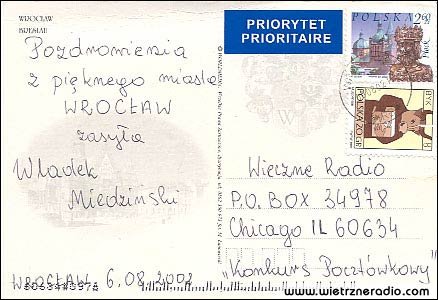 WROCŁAW
BRESLAU
Pozdrowienia
z pięknego miasta
WROCŁAW
zasyła
Władek
Miedziński
WROCŁAW 6.08.2002
PRIORYTET
PRIORITAIRE
POLSKA
2,60
POLSKA 20 GR
BYK
Wieczne Radio
P.O. BOX 34978
Chicago IL 60634
"Konkurs Pocztówkowy"
www.wietrzneradio.com